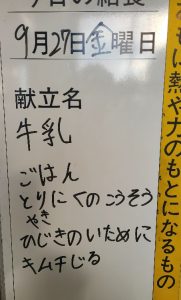 今日の給食
9月27日金曜日
献立名
牛乳
ごはん
とりにくのこうそう
やき
ひじきのいために
キムチじる
おもに熱や力のもとになるもの